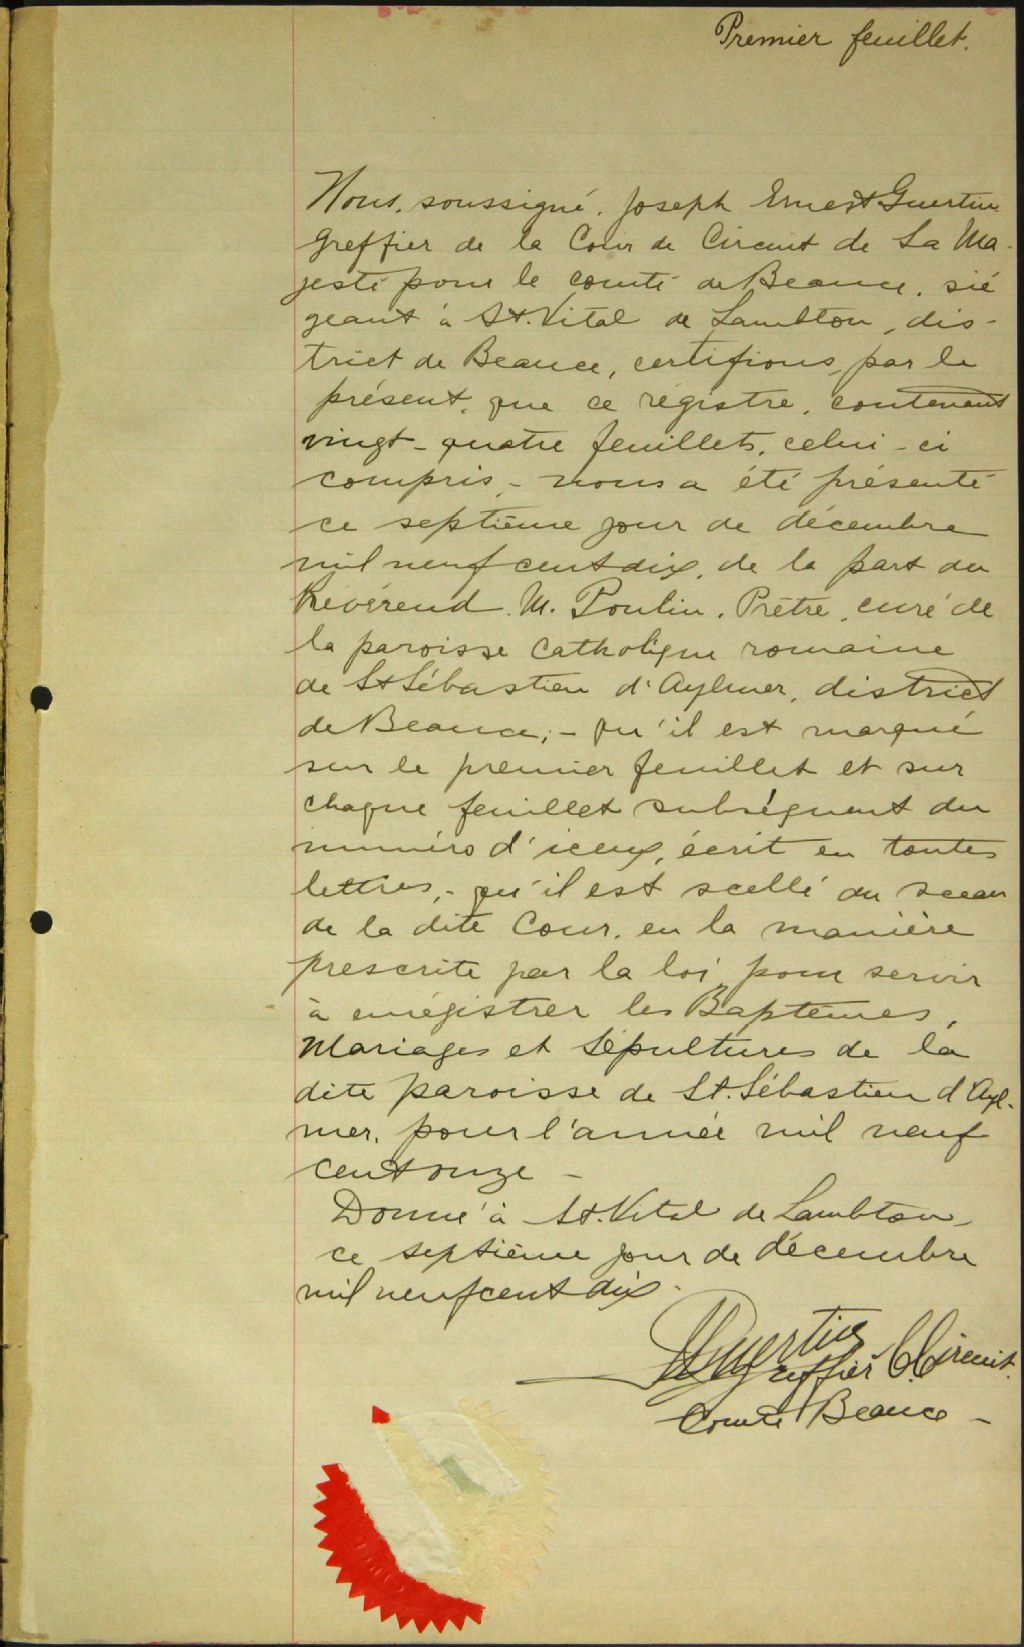 Premier feuillet.
Nous, soussigné, Joseph Ernest Guertin
Greffier de la Cour de Circuit de Sa Ma-
jesté pour le comté de Beauce, sié
geant à St. Vital de Lambton, dis-
trict de Beauce, certifions, par le
présent, que ce régistre, contenant
vingt-quatre feuillets, celui-ci
compris,- nous a été présenté
ce septième jour de décembre
mil neuf cent dix, de la part du
Révérend M. Poulin, Prêtre, curé de
la paroisse Catholique romaine
de St Sébastien d'Aylmer, district
de Beauce;- qu'il est marqué
sur le premier feuillet et sur
chaque feuillet subséquent du
numéro d'iceux, écrit en toutes
lettres,- qu'il est scellé du sceau
de la dite Cour, en la manière
prescrite par la loi, pour servir
à enrégistrer les Baptêmes,
Mariages et Sépultures de la
dite paroisse de St. Sébastien d'Ayl-
mer, pour l'année mil neuf
cent onze -
Donné à St. Vital de Lambton,
ce septième jour de décembre
mil neuf cent dix.
Guertin
Greffier C. Circuit.
Comté Beauce -